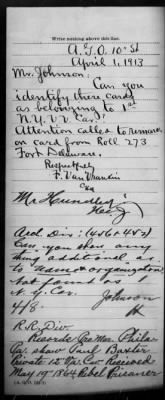 Write nothing above this line.
A.G.O. 10th St
April 1, 1913
Mr. Johnson:
Can you
identify these cards
as belonging to 1st
N.Y. V. Cav.?
Attention called to Remarks
on card from Roll 273
Fort Delaware.
Respectfully
F. Van
Mr.
Arch. Div: (436442)
Can you show any
thing additional as
to name & organization
not found as
N.Y. Cav.
4/8. Johnson
R.R. Div.
Records Pro Mar. Phila
Pa. show Paul Baxter
Private 1st N.Y. Cav Received
May 19 1864 Rebel Prisoner